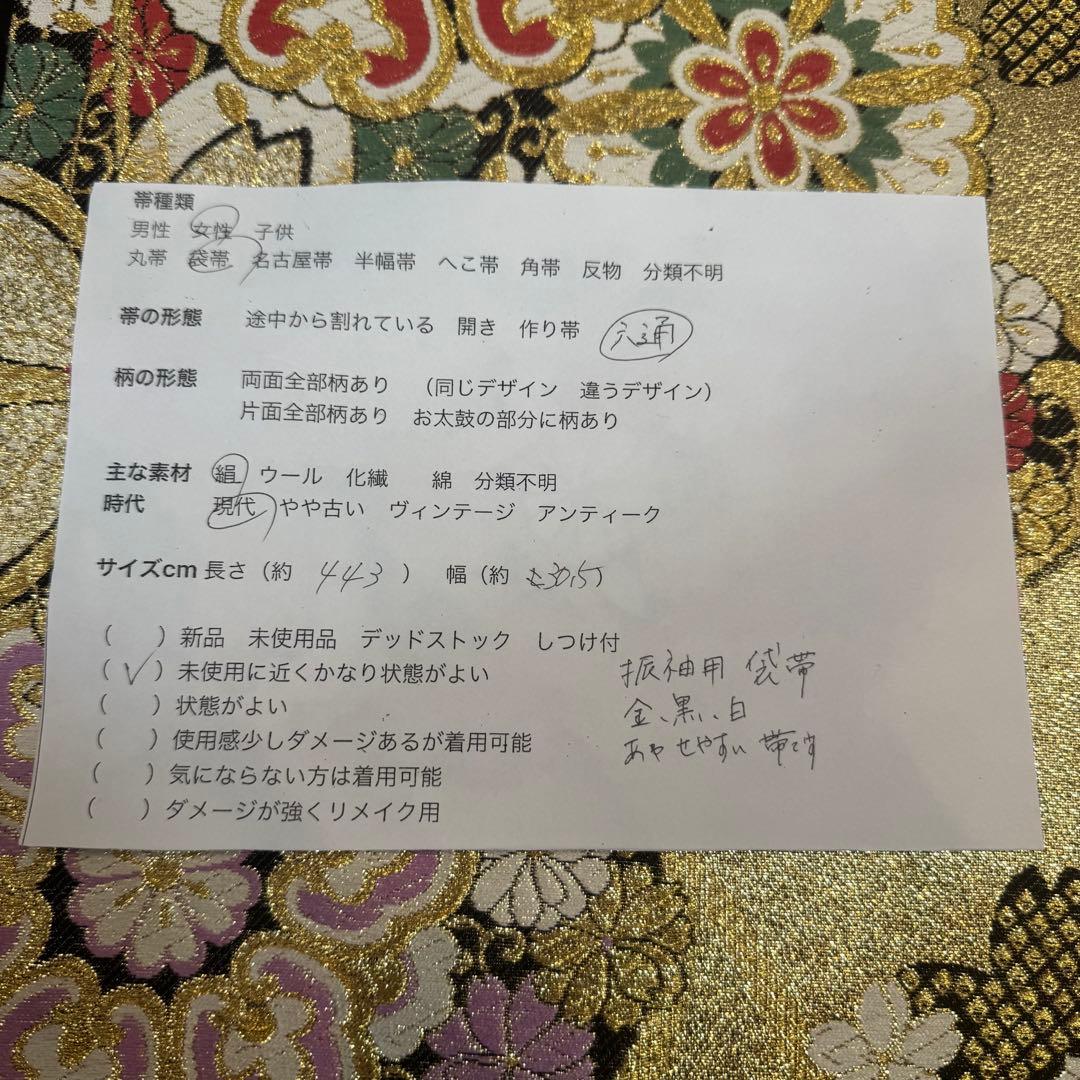 帯種類
男性 女性 子供
丸帯 袋帯 名古屋帯 半幅帯 へこ帯 角帯 反物 分類不明
帯の形態 途中から割れている 開き 作り帯 六通
柄の形態 両面全部柄あり （同じデザイン 違うデザイン）
片面全部柄あり お太鼓の部分に柄あり
主な素材 絹 ウール 化繊 綿 分類不明
時代 現代 やや古い ヴィンテージ アンティーク
サイズcm 長さ（約 443 ） 幅（約 30,5）
（ ）新品 未使用品 デッドストック しつけ付
（ ✓ ）未使用に近くかなり状態がよい
（ ）状態がよい
（ ）使用感少しダメージあるが着用可能
（ ）気にならない方は着用可能
（ ）ダメージが強くリメイク用
振袖用 袋帯
金、黒、白
あわせやすい帯です